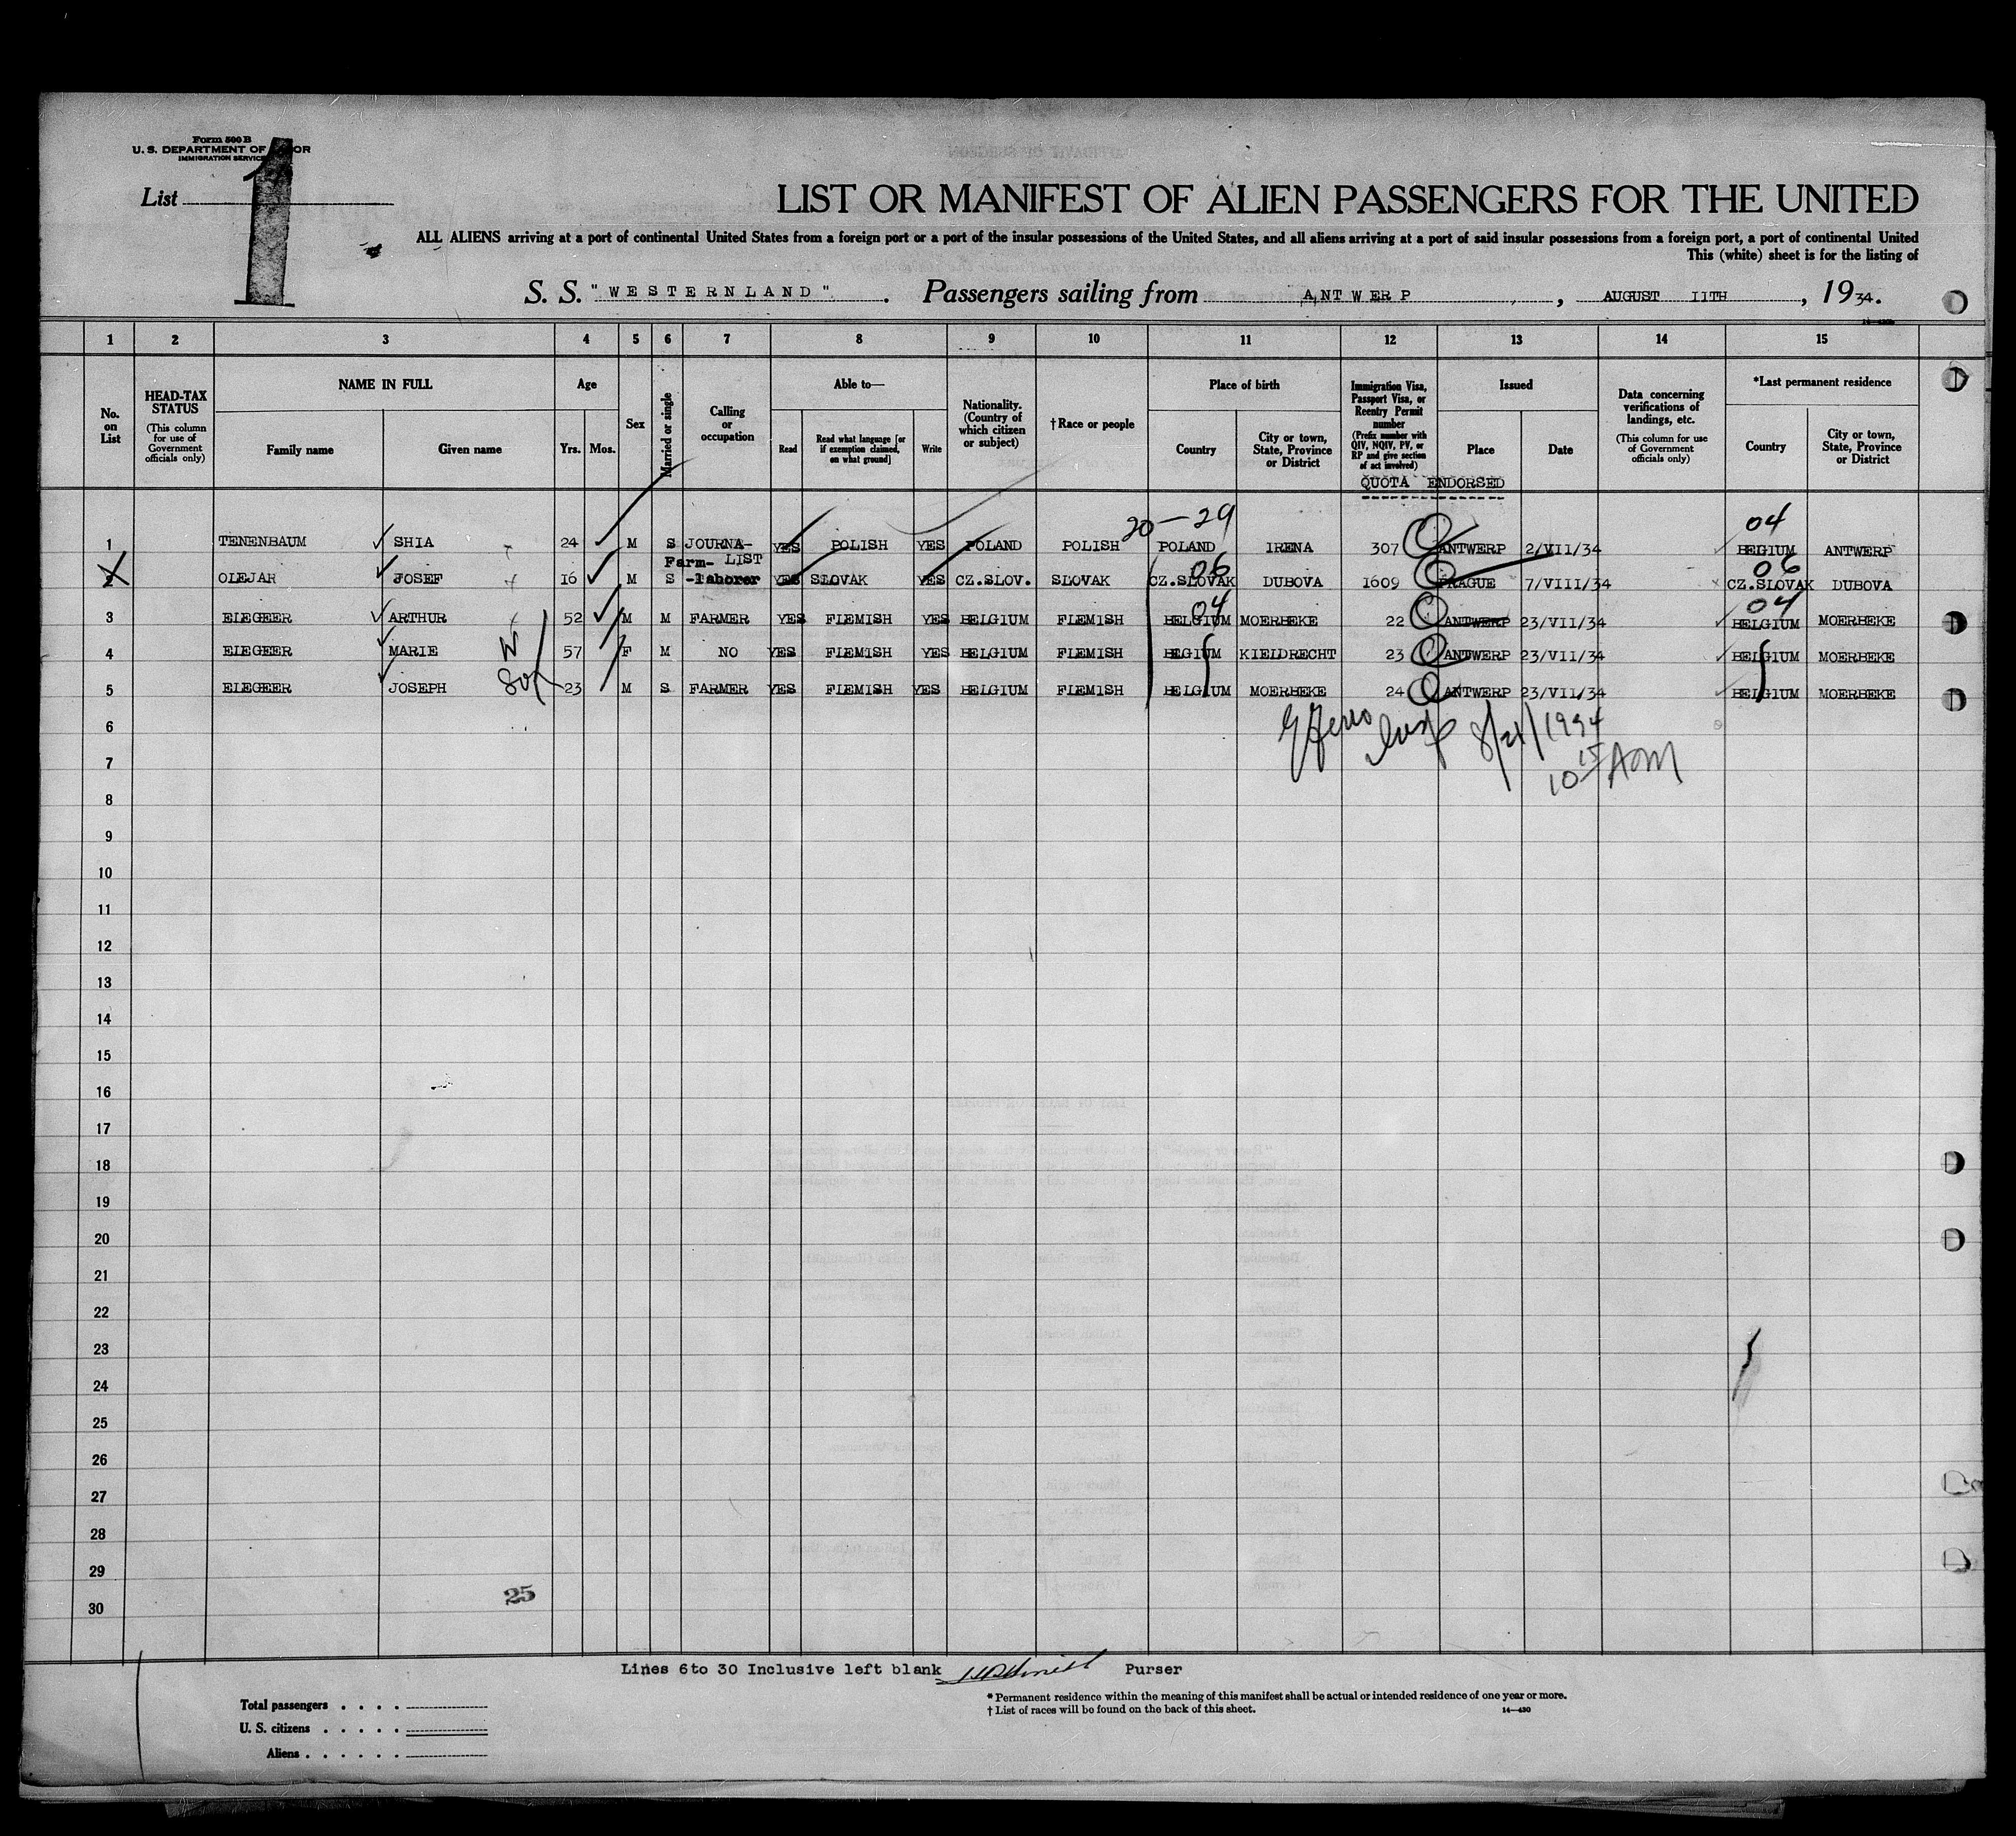 Form 500 B
U. S. DEPARTMENT OF LABOR
IMMIGRATION SERVICE
List 1
LIST OR MANIFEST OF ALIEN PASSENGERS FOR THE UNITED
ALL ALIENS arriving at a port of continental United States from a foreign port or a port of the insular possessions of the United States, and all aliens arriving at a port of said insular possessions from a foreign port, a port of continental United
This (white) sheet is for the listing of
S. S. "WESTERNLAND". Passengers sailing from ANTWERP, AUGUST 11TH, 1934.
1 2 3 4 5 6 7 8 9 10 11 12 13 14 15
No. on List
HEAD-TAX STATUS
(This column for use of Government officials only)
NAME IN FULL
Family name Given name
Age
Yrs. Mos.
Sex
Married or single
Calling or occupation
Able to—
Read Read what language [or if exemption claimed, on what ground] Write
Nationality. (Country of which citizen or subject)
†Race or people
Place of birth
Country City or town, State, Province or District
Immigration Visa, Passport Visa, or Reentry Permit number
(Prefix number with QIV, NQIV, PV, or RP and give section of act involved)
Issued
Place Date
QUOTA ENDORSED
Data concerning verifications of landings, etc.
(This column for use of Government officials only)
*Last permanent residence
Country City or town, State, Province or District
20-29 04
1 TENENBAUM SHIA 24 M S JOURNA-LIST YES POLISH YES POLAND POLISH POLAND IRENA 307 ANTWERP 2/VII/34 BEGIUM ANTWERP
06 06
2 OLEJAR JOSEF 16 M S Farm-laborer YES SLOVAK YES CZ.SLOV. SLOVAK CZ.SLOVAK DUBOVA 1609 PRAGUE 7/VIII/34 CZ.SLOVAK DUBOVA
04 04
3 ELEGEER ARTHUR 52 M M FARMER YES FLEMISH YES BELGIUM FLEMISH BELGIUM MOERBEKE 22 ANTWERP 23/VII/34 BELGIUM MOERBEKE
4 ELEGEER MARIE W 57 F M NO YES FLEMISH YES BELGIUM FLEMISH BEGIUM KIELDRECHT 23 ANTWERP 23/VII/34 BELGIUM MOERBEKE
5 ELEGEER JOSEPH Son 23 M S FARMER YES FLEMISH YES BELGIUM FLEMISH BELGIUM MOERBEKE 24 ANTWERP 23/VII/34 BELGIUM MOERBEKE
6
8/21/1934
7
10 15 AM
8
9
10
11
12
13
14
15
16
17
18
19
20
21
22
23
24
25
26
27
28
29
25
30
Lines 6 to 30 Inclusive left blank Purser
Total passengers . . . .
U. S. citizens . . . . .
Aliens . . . . . .
* Permanent residence within the meaning of this manifest shall be actual or intended residence of one year or more.
† List of races will be found on the back of this sheet.
14—430